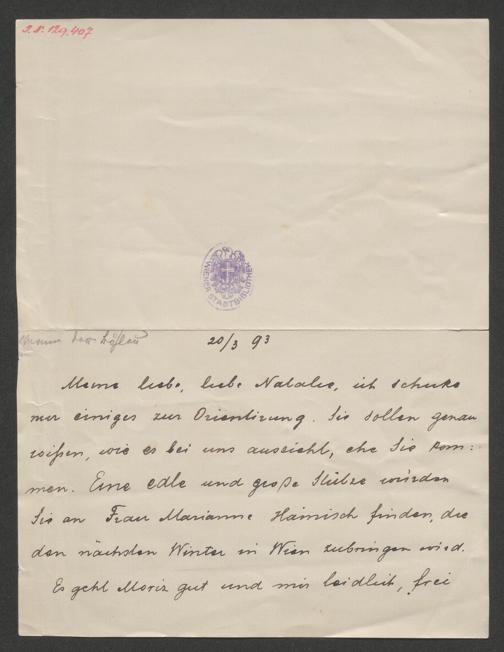 I.N. 129.407
WIENER STADTBIBLIOTHEK
20/3 93
Meine liebe, liebe Natalie, ich schicke
nur einiges zur Orientirung. Sie sollen genau
wißen, wie es bei uns aussieht, ehe Sie kom:
men. Eine edle und große Stütze würden
Sie an Frau Marianne Hainisch finden, die
den nächsten Winter in Wien zubringen wird.
Es geht Moriz gut und mir leidlich, frei